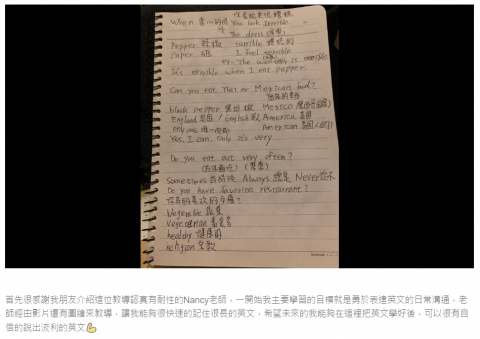 你看起來很糟糕
When 當…的時候 You look terrible.
The dress
Pepper terrible 糟糕的
paper 紙 I feel terrible
ex. The weather is terrible
It's terrible when I eat pepper.
Can you eat Thai or Mexican food?
black pepper 黑胡椒 Mexico
England 英國 / English America 美國
only one 唯一 American 美國人
Yes, I can. Only it's very
Do you eat out very often?
Sometimes Always 總是 Never 從不
Do you have favorite restaurant?
你有最喜歡的餐廳?
Vegetable 蔬菜
素食者
healthy 健康的
religion 宗教
首先很感謝我朋友介紹這位教導認真有耐性的Nancy老師，一開始我主要學習的目標就是勇於表達英文的日常溝通，老
師經由影片還有圖繪來教導，讓我能夠很快速的記住很長的英文，希望未來的我能夠在這裡把英文學好後，可以很有自
信的說出流利的英文💪